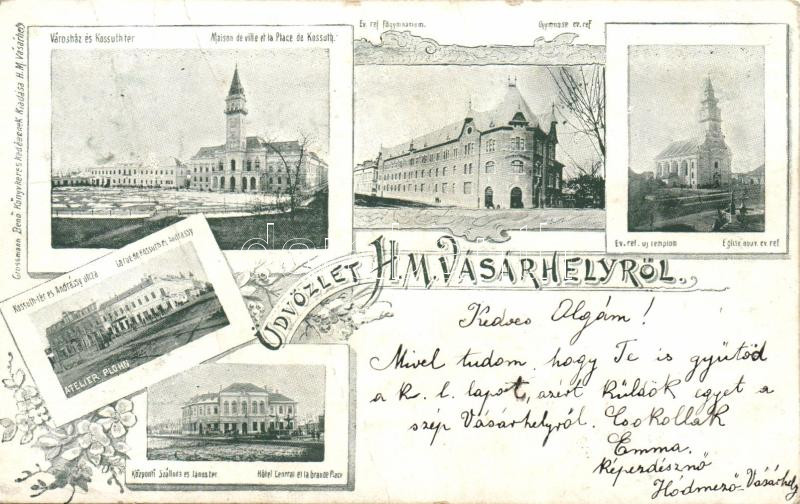 Városház és Kossuth tér
Maison de ville et la Place de Kossuth.
Ev. ref főgymnasium.
Gymnase ev. ref
Grossmann Benő Könyvkereskedésének Kiadása H.M. Vásárhely
Ev. ref. uj templom
Eglise nouv. ev. ref
Kossuth-tér és Andrássy utcza
La rue de Kossuth et Andrássy
ATELIER PLOHN
ÜDVÖZLET H.M.VÁSÁRHELYRŐL.
Központi Szálloda és János tér
Hôtel Central et la Grande Place
Kedves Olgám!
Mivel tudom, hogy Te is gyűtöd
a k. l. lapot, azért küldök egyet a
szép Vásárhelyről. Csokollak
Emma.
képezdésznő
Hódmező-Vásárhely
darabanth